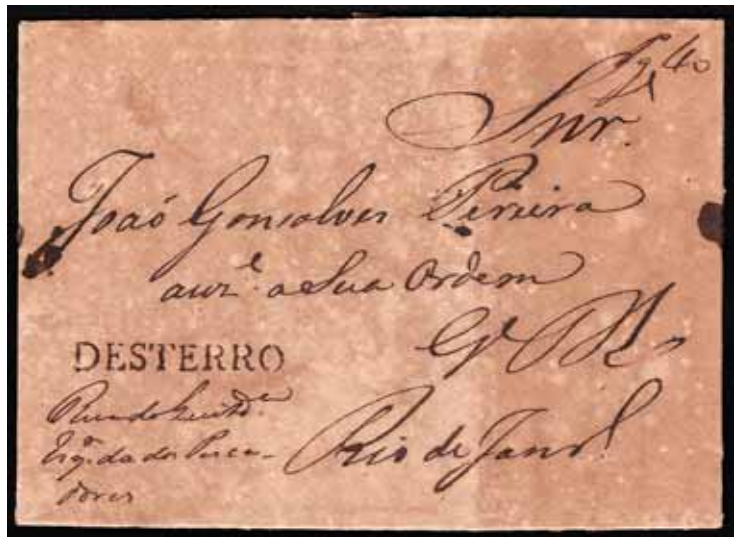 Pg 40
Snr.
João Gonsalves Pereira
auze. a Sua Ordem
DESTERRO
Rua da Quitda.
Esqa. da dos Pesca-
dores
Rio de Janro.